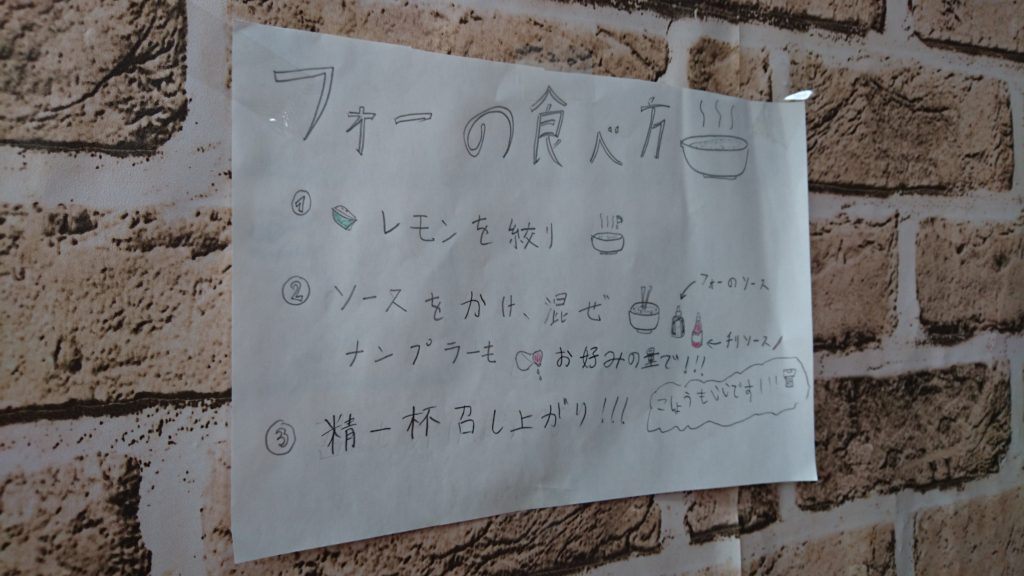 フォーの食べ方
① レモンを絞り
② ソースをかけ、混ぜ
フォーのソース
チリソース
ナンプラーも お好みの量で!!!
③ 精一杯召し上がり!!!
こしょうもいいです!!!